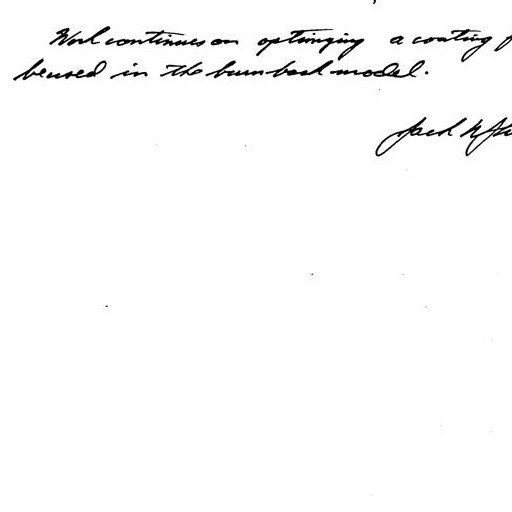 Work continues on optimizing a coating
be used in the burn back model.
Jack